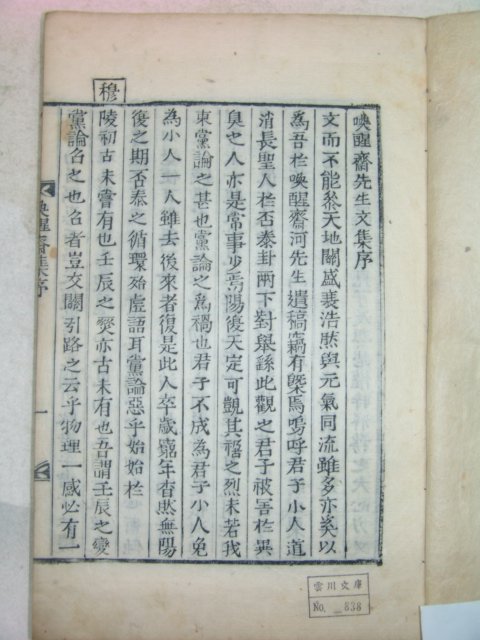 喚醒齋先生文集序
文而不能叅天地關盛衰浩然與元氣同流雖多亦奚以
爲吾於喚醒齋河先生遺稿竊有槩焉嗚呼君子小人道
消長聖人於否泰卦兩下對舉繇此觀之君子被害於異
臭之人亦是常事少焉陽復天定可觀其禍之烈未若我
東黨論之甚也黨論之爲禍也君子不成爲君子小人免
爲小人一人雖去後來者復是此人卒歲窮年杳然無陽
復之期否泰之循環殆虛語耳黨論惡乎始始於
穆
陵初古未嘗有也壬辰之燹亦古未有也吾謂壬辰之變
黨論召之也召者豈交關引路之云乎物理一感必有一
喚醒齋集序
一
雲川文庫
No. 838